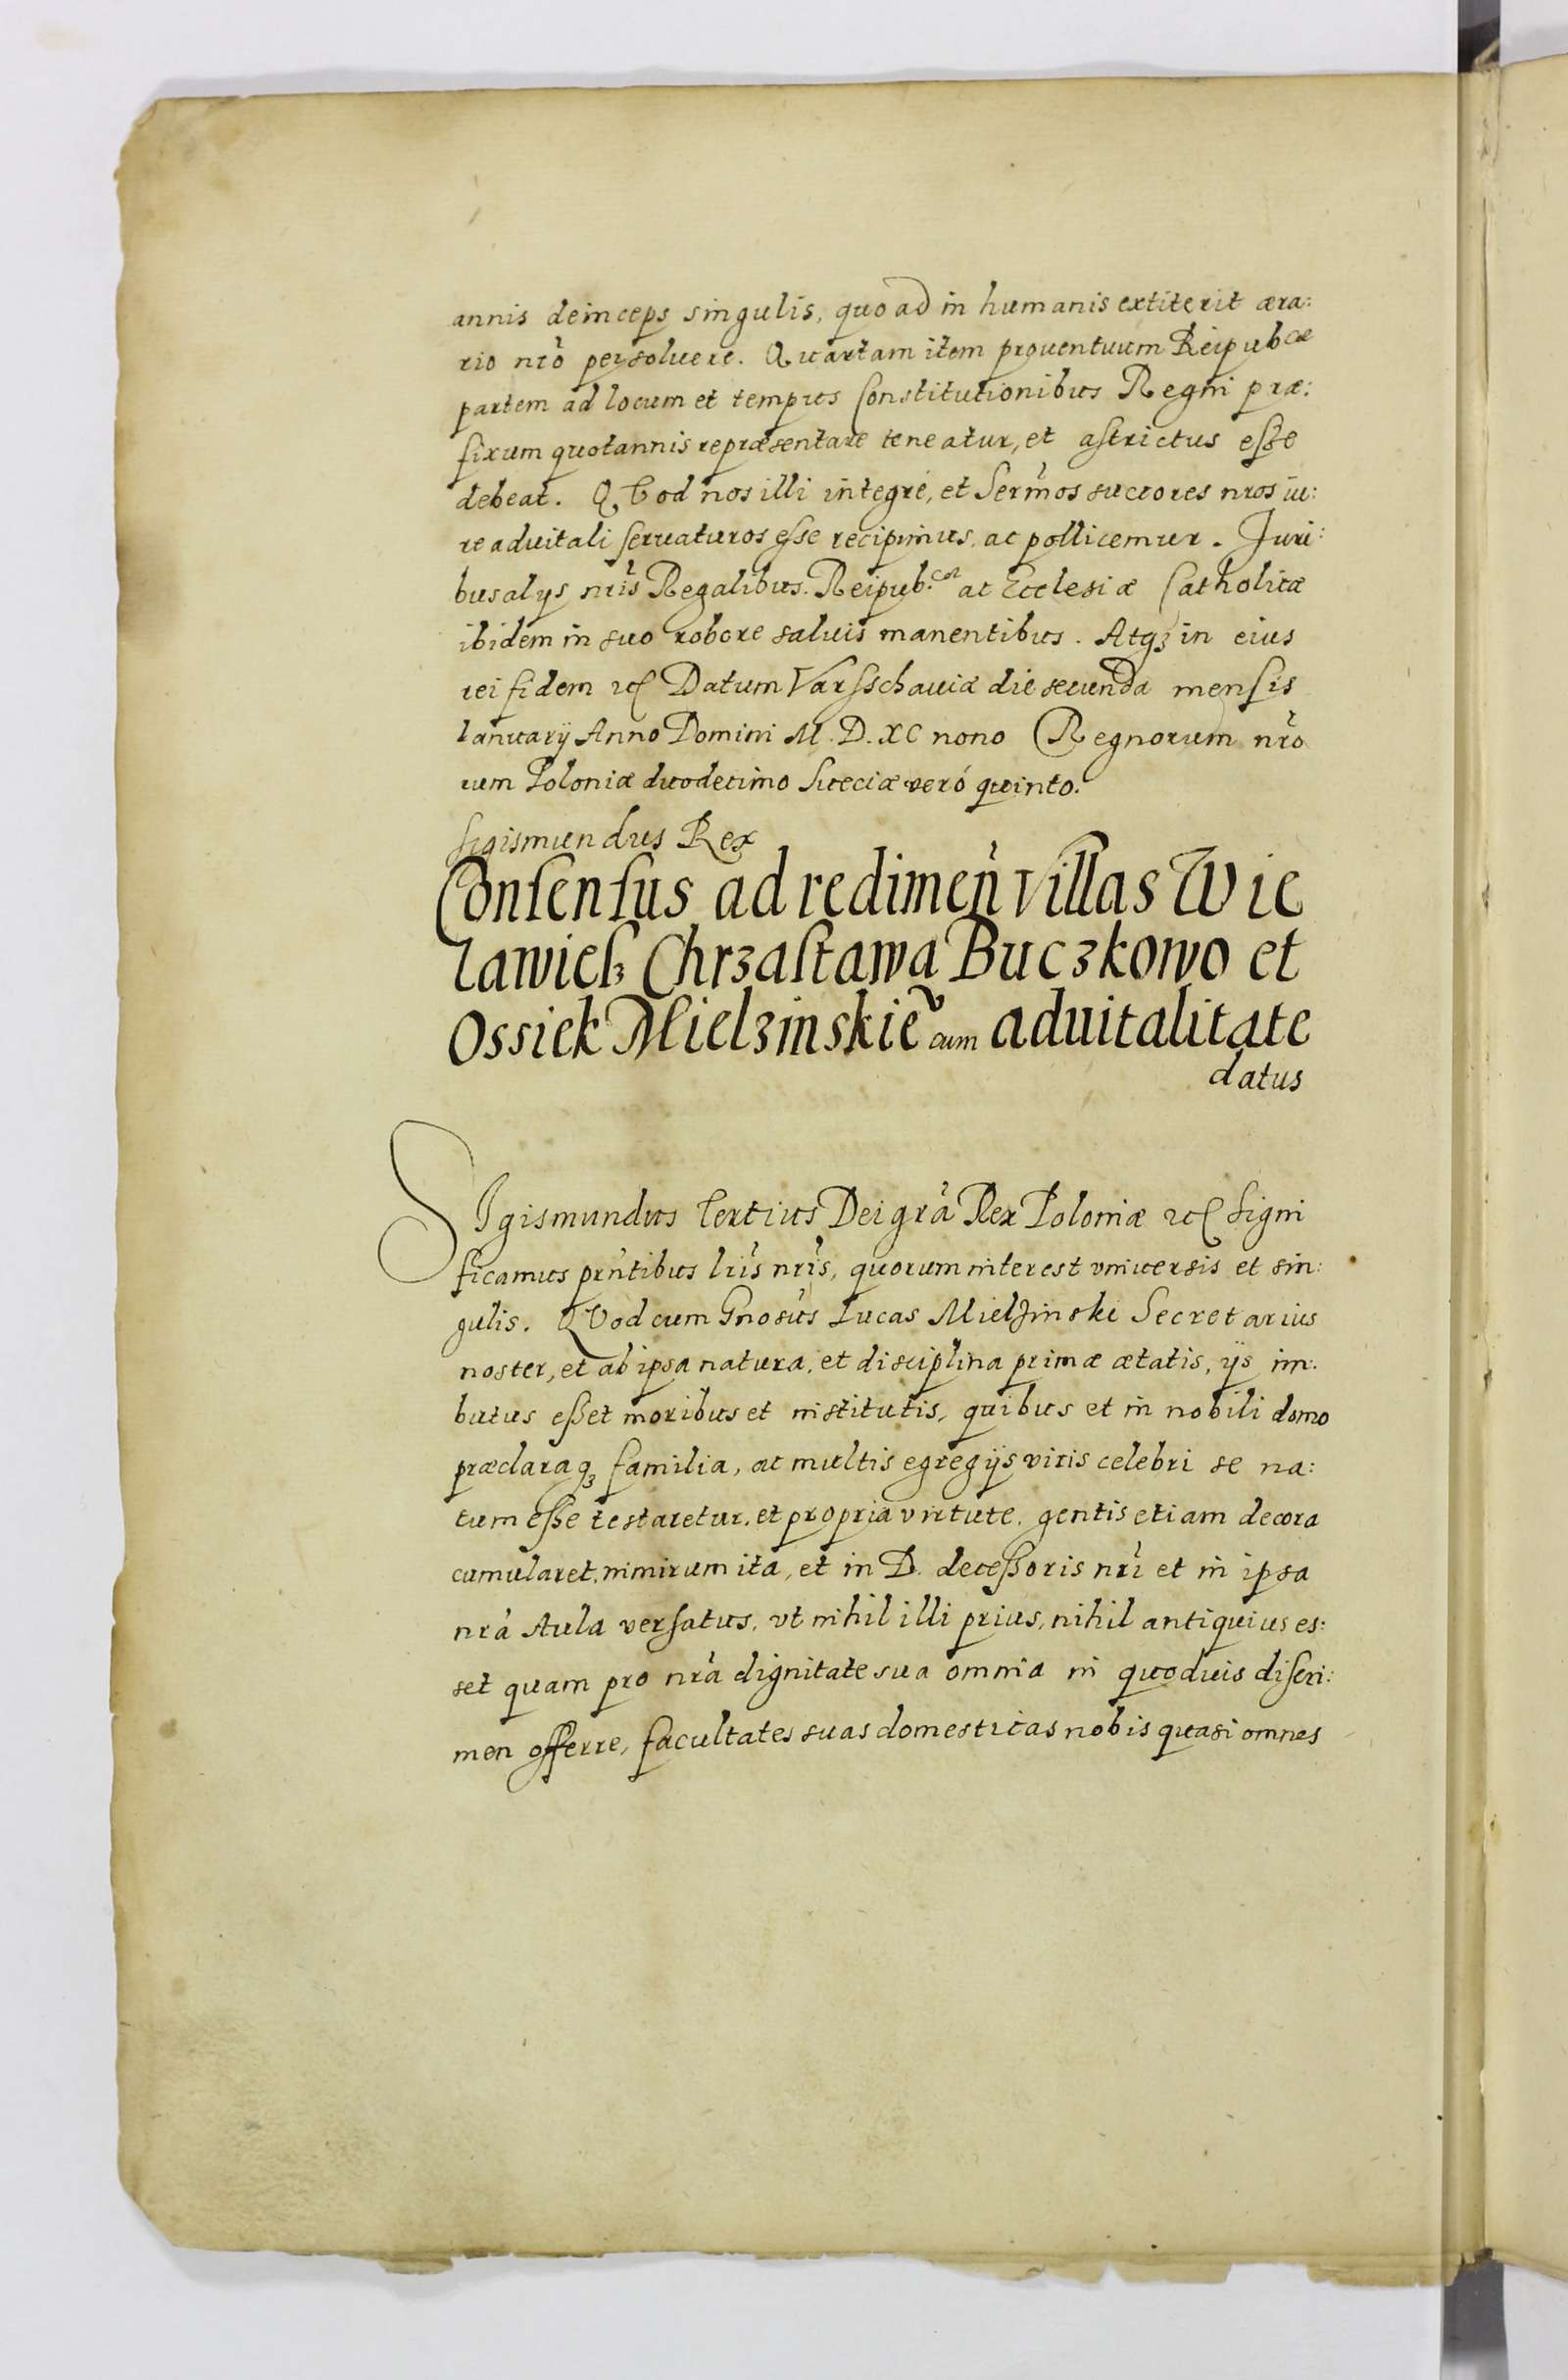 annis deinceps singulis, quoad in humanis extiterit æra:
rio nrō persoluere. Quartam item prouentuum Reipubcæ
partem ad locum et tempus Constitutionibus Regni præ:
fixum quotannis repræsentare teneatur, et astrictus esse
debeat. QVod nos illi integré, et Sermos succores nros iu:
re aduitali seruaturos esse recipimus, ac pollicemur. Juri:
bus alijs nris Regalibus. Reipub.cæ ac Ecclesiæ Catholicæ
ibidem in suo robore saluis manentibus. Atqȝ in eius
rei fidem etc Datum Varsschauiæ die secunda mensis
Ianuarij Anno Domini M. D. XC nono Regnorum nrō
rum Poloniæ duodecimo Sueciæ veró quinto.
Sigismundus Rex
Consensus ad redimen villas Wie
lawieß Chrzastawa Buczkowo et
Ossiek Mielzinskie͂ cum aduitalitate
datus
SIgismundus Tertius Dei gra Rex Poloniæ etc Signi
ficamus prntibus lris nris, quorum interest vniuersis et sin:
gulis. QVod cum Gnosus Lucas Mielzinski Secretarius
noster, et ab ipsa natura, et disciplina primæ ætatis, ijs im:
butus esset moribus et institutis, quibus et in nobili domo
præclaraqȝ familia, ac multis egregijs viris celebri se na:
tum esse testaretur, et propria virtute, gentis etiam decora
cumularet, nimirum ita, et in D. decessoris nri et in ipsa
nra Aula versatus, vt nihil illi prius, nihil antiquius es:
set quam pro nra dignitate sua omnia in quoduis discri:
men offerre, facultates suas domesticas nobis quasi omnes